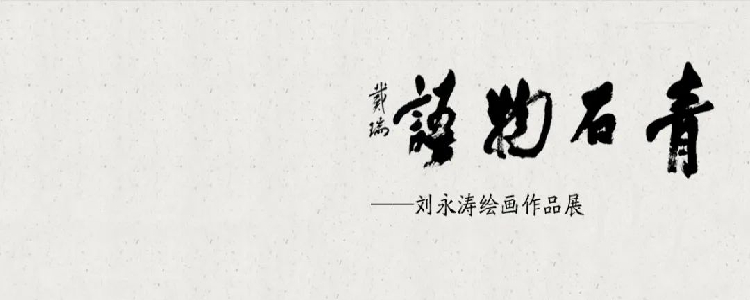 青石物語
戴瑞
——刘永涛绘画作品展